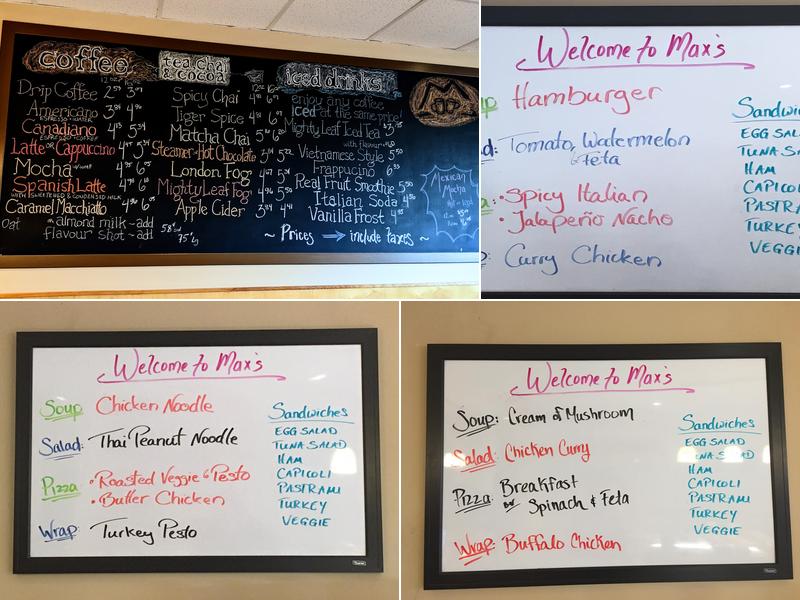 coffee
Drip Coffee
Americano
ESPRESSO + WATER
Canadiano
ESPRESSO + COFFEE
Latte OR Cappuccino
Mocha
Spanish Latte
WITH SWEETENED & CONDENSED MILK
Caramel Macchiato
oat almond milk - add
flavour shot - add
tea, chai
& cocoa
Spicy Chai
Tiger Spice
Matcha Chai
Steamer or Hot Chocolate
London Fog
Mighty Leaf Fog
Apple Cider
iced drinks
enjoy any coffee
iced at the same price!
Mighty Leaf Iced Tea
Vietnamese Style 5.50
Frappuccino
Real Fruit Smoothie 5.50
Italian Soda
Vanilla Frost
~ Prices → include taxes ~
Mexican
Mocha
Welcome to Max's
Hamburger
Tomato, Watermelon
& Feta
• Spicy Italian
• Jalapeño Nacho
Curry Chicken
Sandwi
EGG SA
TUNA S
HAM
CAPICO
PASTRA
TURKEY
VEGGI
Welcome to Max's
Soup: Chicken Noodle
Salad: Thai Peanut Noodle
Pizza • Roasted Veggie & Pesto
• Butter Chicken
Wrap: Turkey Pesto
Sandwiches
EGG SALAD
TUNA SALAD
HAM
CAPICOLI
PASTRAMI
TURKEY
VEGGIE
Welcome to Max's
Soup: Cream of Mushroom
Salad: Chicken Curry
Pizza: Breakfast
or Spinach & Feta
Wrap: Buffalo Chicken
Sandwiches
EGG SALAD
TUNA SALAD
HAM
CAPICOLI
PASTRAMI
TURKEY
VEGGIE